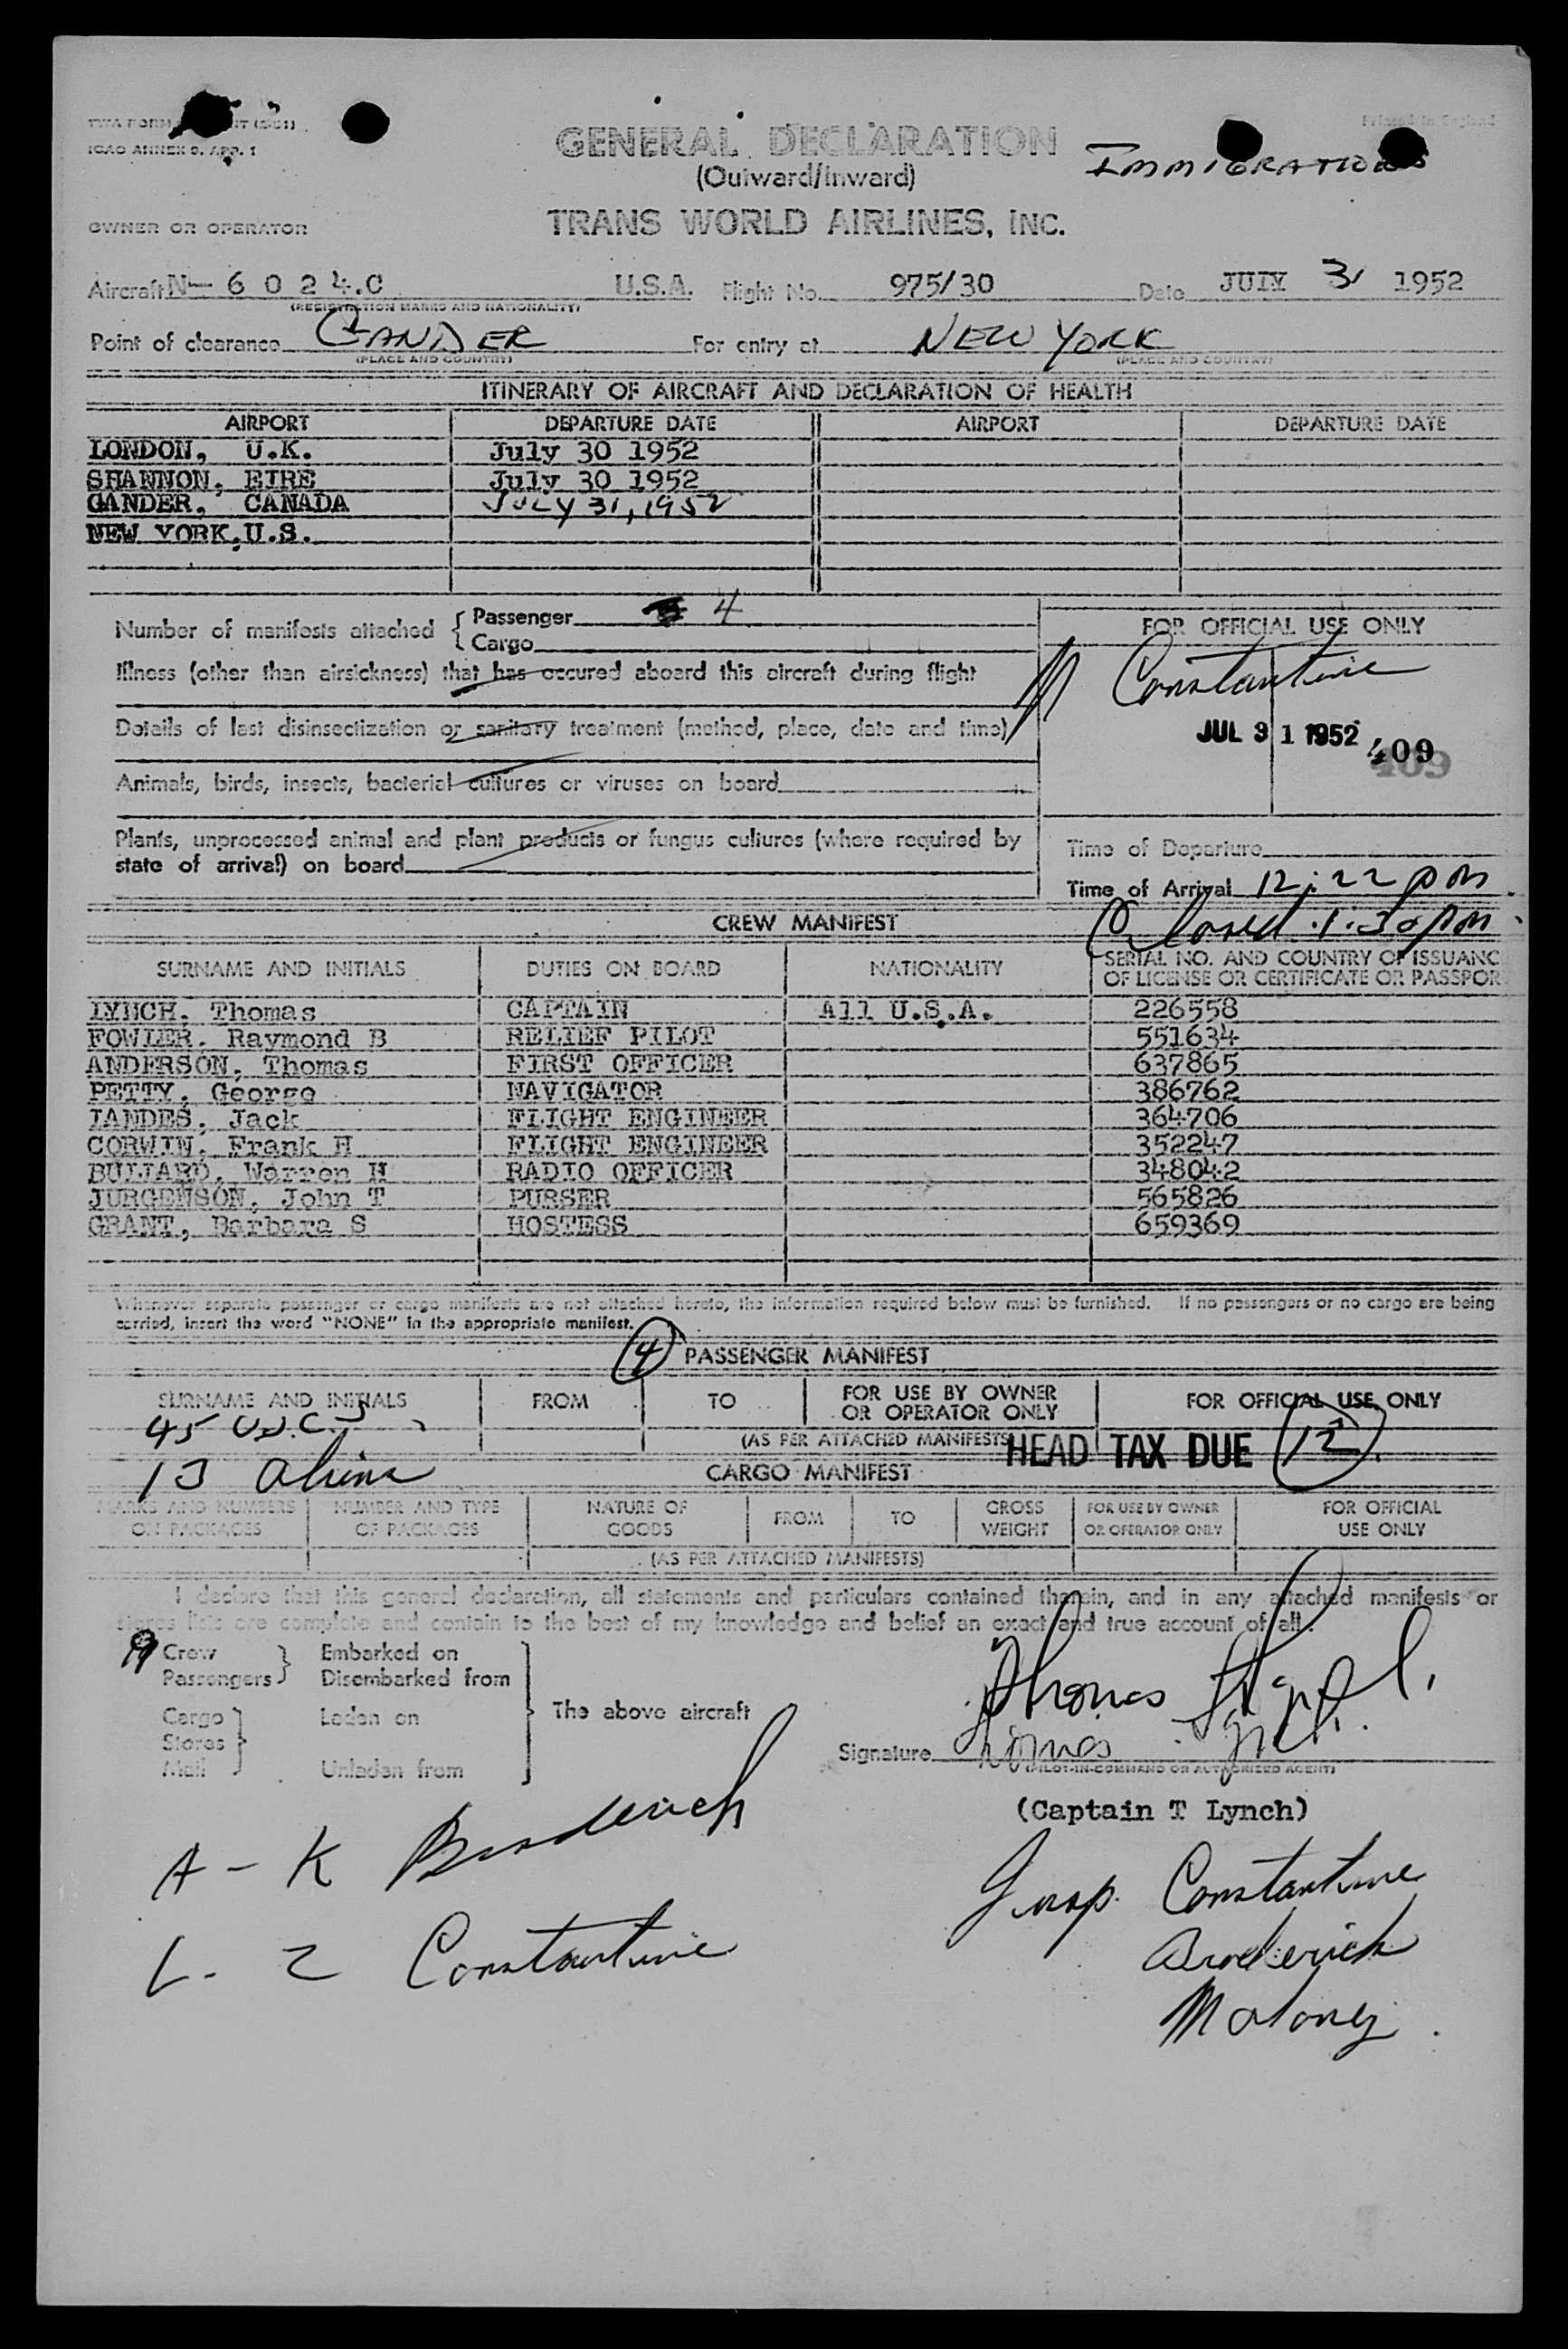 ICAO ANNEX 9, APP. 1
Printed in England
GENERAL DECLARATION
(Outward/Inward)
IMMIGRATION
OWNER OR OPERATOR TRANS WORLD AIRLINES, INC.
Aircraft N- 6 0 2 4.C U.S.A. Flight No. 975/30 Date JULY 31 1952
(REGISTRATION MARKS AND NATIONALITY)
Point of clearance GANDER For entry at NEW YORK
(PLACE AND COUNTRY) (PLACE AND COUNTRY)
ITINERARY OF AIRCRAFT AND DECLARATION OF HEALTH
AIRPORT DEPARTURE DATE AIRPORT DEPARTURE DATE
LONDON, U.K. July 30 1952
SHANNON, EIRE July 30 1952
GANDER, CANADA JULY 31, 1952
NEW YORK, U.S.
Number of manifests attached { Passenger 4
Cargo
FOR OFFICIAL USE ONLY
Illness (other than airsickness) that has occured aboard this aircraft during flight
Constantine
Details of last disinsectization or sanitary treatment (method, place, date and time)
JUL 31 1952 409
409
Animals, birds, insects, bacterial cultures or viruses on board
Plants, unprocessed animal and plant products or fungus cultures (where required by
state of arrival) on board
Time of Departure
Time of Arrival 12:22 pm
Closed 1:30 pm
CREW MANIFEST
SURNAME AND INITIALS DUTIES ON BOARD NATIONALITY SERIAL NO. AND COUNTRY OF ISSUANC
OF LICENSE OR CERTIFICATE OR PASSPOR
LYNCH. Thomas CAPTAIN All U.S.A. 226558
FOWLER. Raymond B RELIEF PILOT 551634
ANDERSON, Thomas FIRST OFFICER 637865
PETTY, George NAVIGATOR 386762
LANDES, Jack FLIGHT ENGINEER 364706
CORWIN, Frank H FLIGHT ENGINEER 352247
BULLARD, Warren H RADIO OFFICER 348042
JURGENSON, John T PURSER 565826
GRANT, Barbara S HOSTESS 659369
Whenever separate passenger or cargo manifests are not attached hereto, the information required below must be furnished. If no passengers or no cargo are being
carried, insert the word "NONE" in the appropriate manifest.
4 PASSENGER MANIFEST
SURNAME AND INITIALS FROM TO FOR USE BY OWNER
OR OPERATOR ONLY FOR OFFICIAL USE ONLY
45 U.S.C.
(AS PER ATTACHED MANIFESTS) HEAD TAX DUE 12
13 Aliens
CARGO MANIFEST
MARKS AND NUMBERS
ON PACKAGES NUMBER AND TYPE
OF PACKAGES NATURE OF
GOODS FROM TO GROSS
WEIGHT FOR USE BY OWNER
OR OPERATOR ONLY FOR OFFICIAL
USE ONLY
(AS PER ATTACHED MANIFESTS)
I declare that this general declaration, all statements and particulars contained therein, and in any attached manifests or
stores lists are complete and contain to the best of my knowledge and belief an exact and true account of all:
9 Crew
Passengers } Embarked on
Disembarked from
Cargo
Stores
Mail } Laden on
Unladen from
The above aircraft
Thomas Lynch
Signature Thomas Lynch
(PILOT-IN-COMMAND OR AUTHORIZED AGENT)
(Captain T Lynch)
A - K Broderick
L - Z Constantine
Insp. Constantine
Broderick
Maloney